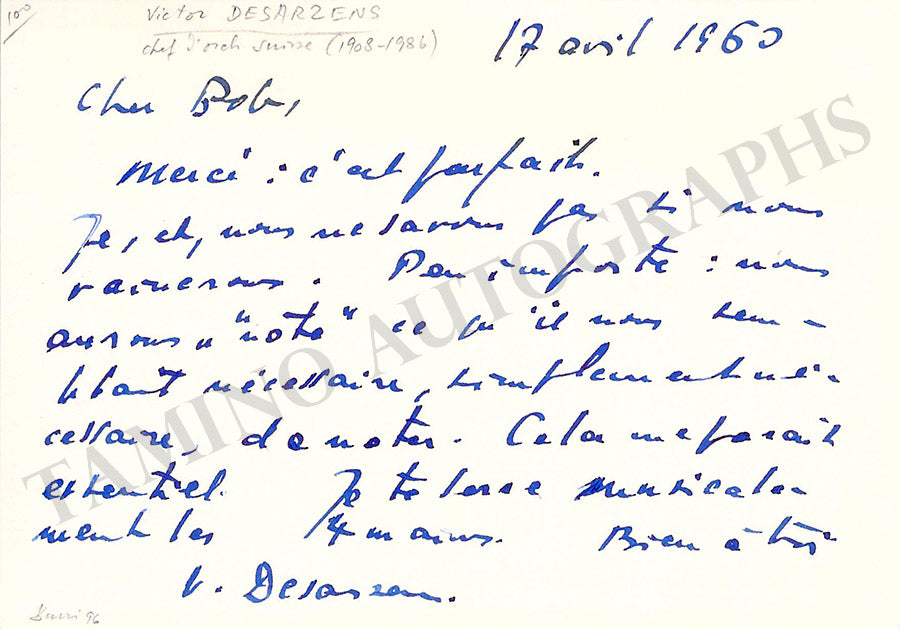 10⁰⁰
Victor DESARZENS
chef d'orch suisse (1908-1986)
17 avril 1960
Cher Bob,
Merci : c'est parfait.
Je, et, nous ne savons pas si nous
vaincrons. Peu importe : nous
aurons "noté" ce qu'il nous sem-
blait nécessaire, simplement né-
cessaire, de noter. Cela me paraît
essentiel. Je te serre musicale-
ment les 4 mains. Bien à toi
V. Desarzens.
TAMINO AUTOGRAPHS
96